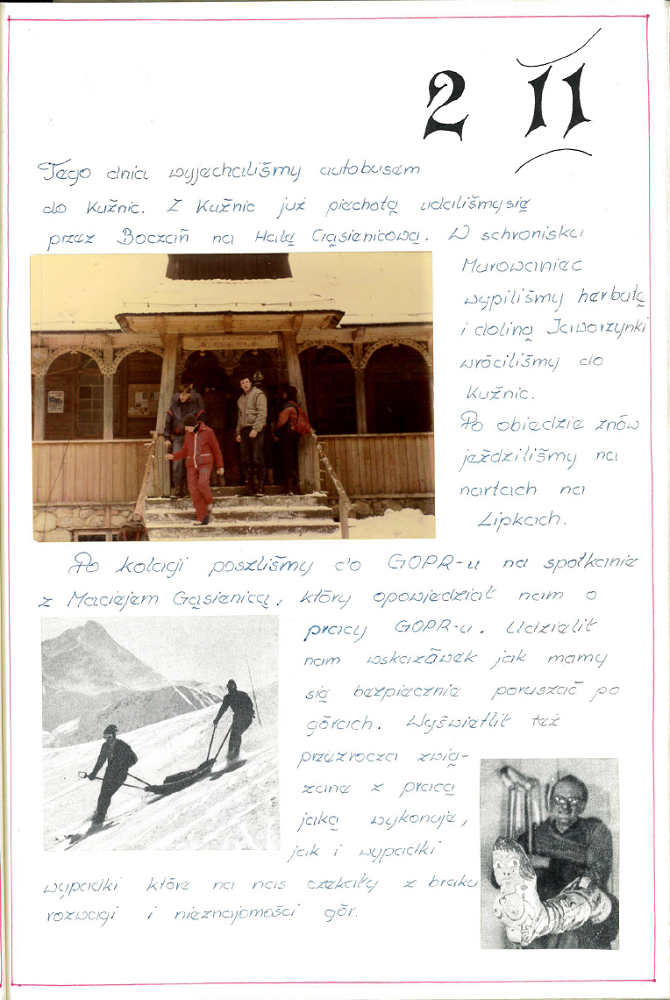 2 II
Tego dnia wyjechaliśmy autobusem
do Kuźnic. Z Kuźnic już piechotą udaliśmy się
przez Boczań na Halę Gąsienicową. W schronisku
Murowaniec
wypiliśmy herbatę
i doliną Jaworzynki
wróciliśmy do
Kuźnic.
Po obiedzie znów
jeździliśmy na
nartach na
Lipkach.
Po kolacji poszliśmy do GOPR-u na spotkanie
z Maciejem Gąsienicą, który opowiedział nam o
pracy GOPR-u. Udzielił
nam wskazówek jak mamy
się bezpiecznie poruszać po
górach. Wyświetlił też
przeźrocza zwią-
zane z pracą
jaką wykonuje,
jak i wypadki
wypadki które na nas czekały z braku
rozwagi i nieznajomości gór.